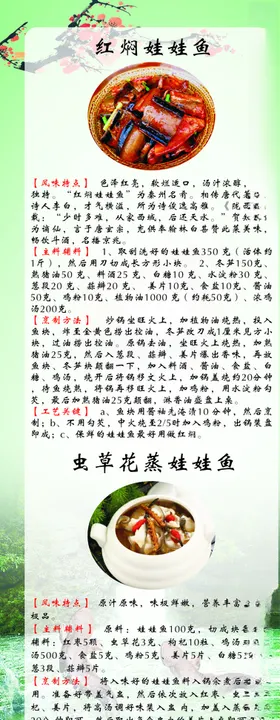 红焖娃娃鱼
【风味特点】 色泽红亮，软烂适口，汤汁浓醇，
独特。“红焖娃娃鱼”为秦州名肴。相传唐代著
诗人李白，才气横溢，所为诗俊逸高雅。《陇西
载：“少时多难，从家西域，后迁天水。”贺知
为谪仙，言于唐玄宗，充供奉翰林白尝赞此菜美味，
畅饮斗酒，名播京兆。
【主料辅料】 1、取剖洗好的娃娃鱼350克（活体约
1斤），然后用刀切成长方形小块。 2、冬笋150克、
熟猪油50克、料酒25克、白糖10克、水淀粉30克、
葱段20克、蒜瓣20克、 姜片10克、食盐10克、酱油
50克、鸡粉10克、植物油1000克（约耗50克）、浓鸡
汤200克。
【烹制方法】 炒锅坐旺火上，加植物油烧热，投入
鱼块，炸至金黄色捞出控油，冬笋改刀成1厘米见方小
块，过油捞出控油。原锅去油，坐旺火上烧热，加熟
猪油25克，然后入葱段、蒜瓣、姜片爆出香味，再放
鱼块、冬笋块颠翻一下，加入料酒、酱油、食盐、白
糖、鸡汤，烧开后将锅移文火上，加锅盖烧约20分钟
，待鱼烧熟，将锅再移旺火上，加鸡粉，用水淀粉勾
芡，最后加熟猪油25克颠翻，淋香油盛盘上桌。
【工艺关键】 a、鱼块用酱油先淹渍10分钟，然后烹
制；b、不用勾芡，中火烧至2/5时加入鸡粉，出锅装盘
即成；c、保鲜的娃娃鱼最好用做红焖。
虫草花蒸娃娃鱼
【风味特点】 原汁原味，味极鲜嫩，营养丰富
极品。
【主料辅料】 原料：娃娃鱼100克，切成块
辅料：红枣5颗、虫草花3克、枸杞10粒、鸡汤
汤500克、食盐5克、鸡粉5克、姜片5片、白糖5
葱3段、蒜瓣5片。
【烹制方法】 将入味好的娃娃鱼料入锅汆煮后
用。准备好带盖汽盅，然后依次放入红枣、虫
杞、姜片，将高汤调好味装入盅内，加盖入蒸